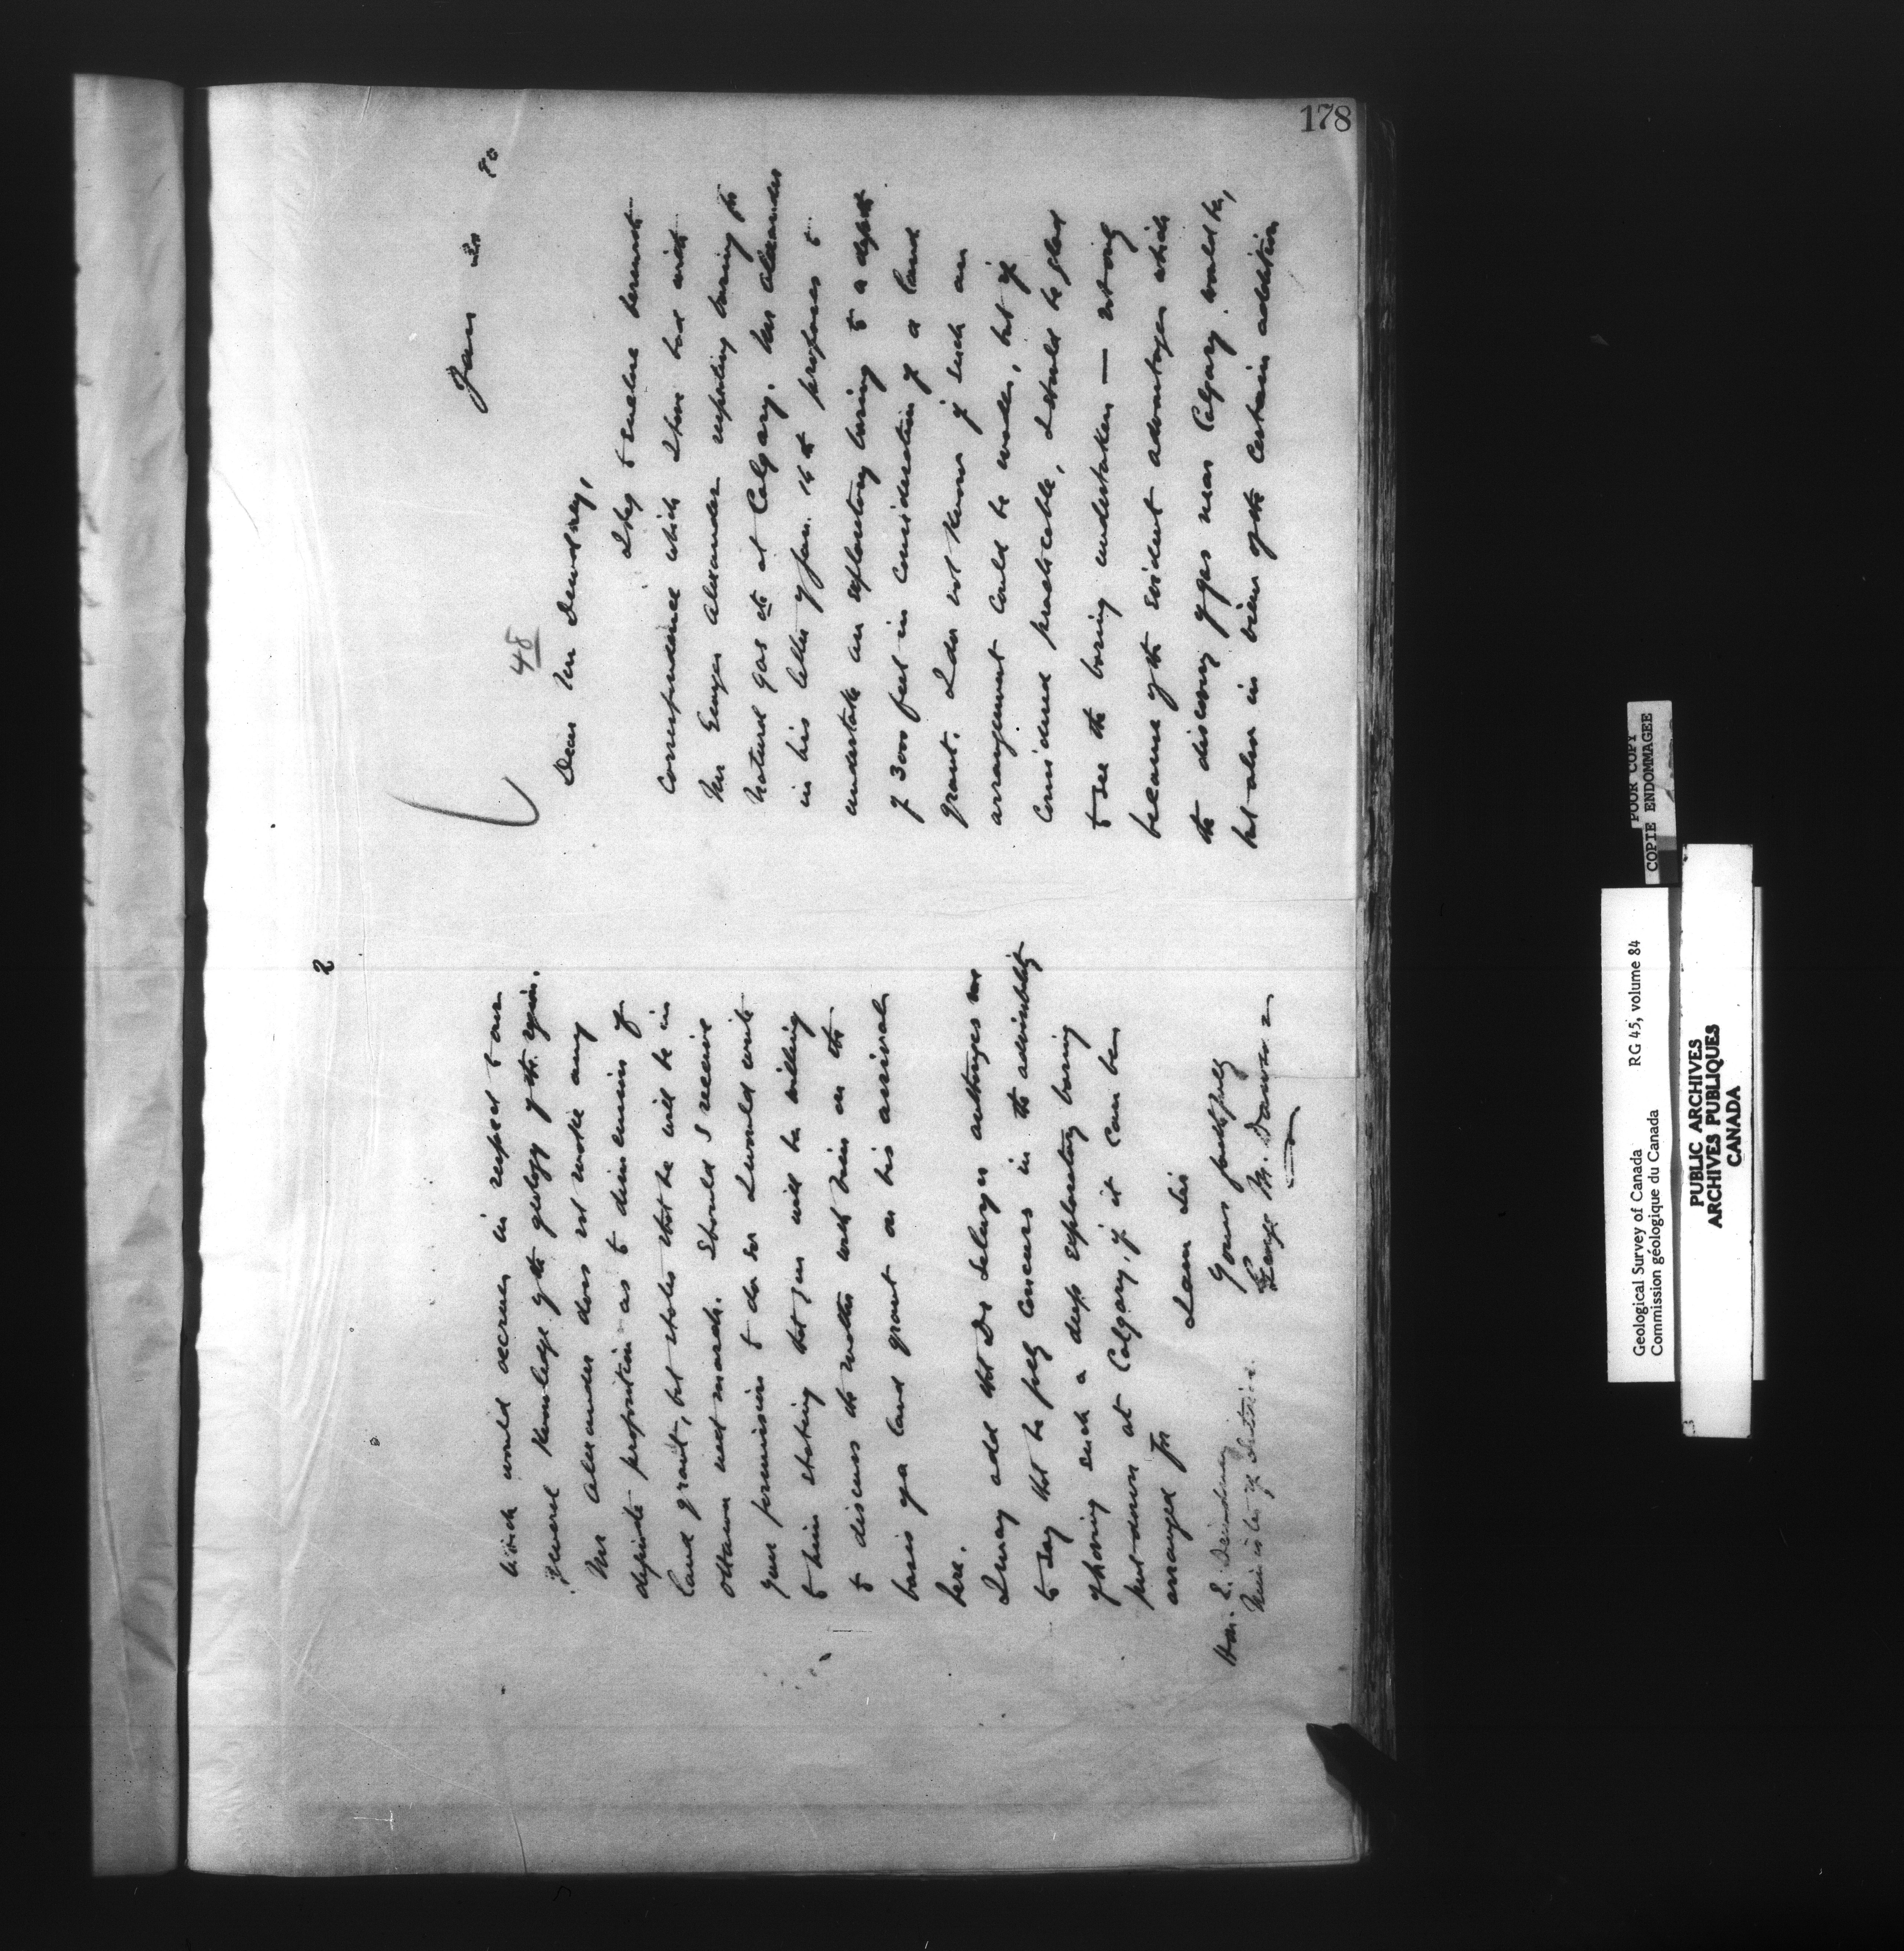 178
Jan 20 90
48
Dear Mr Dewdney,
I beg to enclose herewith
correspondence which I have had with
Mr George Alexander respecting boring for
Natural gas etc at Calgary. Mr Alexander
in his letter of Jan. 14th proposes to
undertake an exploratory boring to a depth
of 3000 feet in consideration of a land
grant. I do not know if such an
arrangement could be made, but if
considered practicable, I should be glad
to see the boring undertaken — not only
because of the evident advantages which
the discovery of gas near Calgary would be,
but also in view of the certain addition
2
which would accrue in respect to our
general knowledge of the geology of the region.
Mr Alexander does not make any
definite proposition as to dimensions of
land grant, but states that he will be in
Ottawa next month. Should I receive
your permission to do so I would write
to him stating that you will be willing
to discuss the matter with him on the
basis of a land grant on his arrival
here.
I may add that Dr Selwyn authorizes me
to say that he fully concurs in the advisability
of having such a deep exploratory boring
put down at Calgary, if it can be
arranged for
I am Sir
Yours faithfully
George M. Dawson
Hon. E. Dewdney
Minister of Interior.
POOR COPY
COPIE ENDOMMAGEE
Geological Survey of Canada RG 45, volume 84
Commission géologique du Canada
PUBLIC ARCHIVES
ARCHIVES PUBLIQUES
CANADA